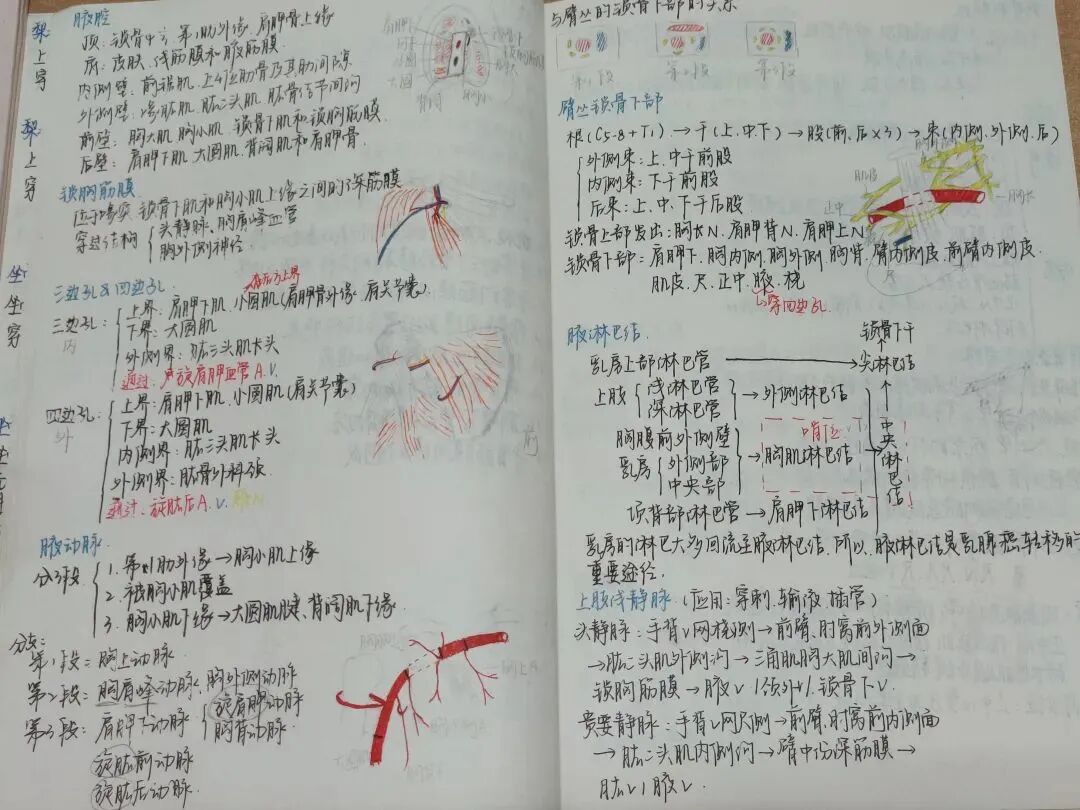 梨上穿
梨上穿
坐
坐穿
腋腔
顶:锁骨中、第1肋外缘、肩胛骨上缘
底:皮肤、浅筋膜和腋筋膜
内侧壁:前锯肌、上4位肋骨及其肋间隙
外侧壁:喙肱肌、肱二头肌、肱骨结节间沟
前壁:胸大肌、胸小肌、锁骨下肌和锁胸筋膜
后壁:肩胛下肌、大圆肌、背阔肌和肩胛骨
锁胸筋膜
位于喙突、锁骨下肌和胸小肌上缘之间的深筋膜
穿过结构
头静脉、胸肩峰血管
胸外侧神经
三边孔&四边孔
三边孔:
内
上界:肩胛下肌、小圆肌(肩胛骨外缘、肩关节囊)
下界:大圆肌
外侧界:肱三头肌长头
通过:旋肩胛血管A.V.
四边孔:
外
上界:肩胛下肌、小圆肌(肩关节囊)
下界:大圆肌
内侧界:肱三头肌长头
外侧界:肱骨外科颈
通过:旋肱后A.V.腋N
前
腋动脉
分3段
1.第1肋外缘→胸小肌上缘
2.被胸小肌覆盖
3.胸小肌下缘→大圆肌腱、背阔肌下缘
分支:
第1段:胸上动脉
第2段:胸肩峰动脉、胸外侧动脉
第3段:肩胛下动脉
旋肩胛动脉
胸背动脉
旋肱前动脉
旋肱后动脉
与臂丛的锁骨下部的关系
第1段 第2段 第3段
臂丛锁骨下部
根(C5-8+T1)→干(上、中、下)→股(前、后×3)→束(内侧、外侧、后)
外侧束:上、中干前股
内侧束:下干前股
后束:上、中、下干后股
肌皮
正中
尺
胸长
锁骨上部发出:胸长N、肩胛背N、肩胛上N
锁骨下部:肩胛下、胸内侧、胸外侧、胸背、臂内侧皮、前臂内侧皮、
肌皮、尺、正中、腋、桡
↳穿四边孔
腋淋巴结
锁骨下干
乳房上部淋巴管→尖淋巴结
上肢
浅淋巴管
深淋巴管
→外侧淋巴结
胸腹前外侧壁
乳房
外侧部
中央部
→胸肌淋巴结
中央淋巴结
项背部淋巴管→肩胛下淋巴结
乳房的淋巴大多回流至腋淋巴结,所以,腋淋巴结是乳腺癌转移的
重要途径.
上肢浅静脉(应用:穿刺、输液、插管)
头静脉:手背V网桡侧→前臂、肘窝前外侧面
→肱二头肌外侧沟→三角肌胸大肌间沟→
锁胸筋膜→腋V/锁骨下V.
贵要静脉:手背V网尺侧→前臂、肘窝前内侧面
→肱二头肌内侧沟→臂中份深筋膜→
肱V/腋V